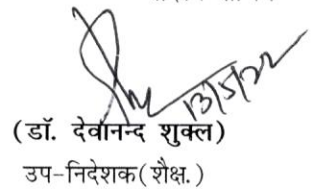 13/5/22
(डॉ. देवानन्द शुक्ल)
उप-निदेशक(शैक्ष.)